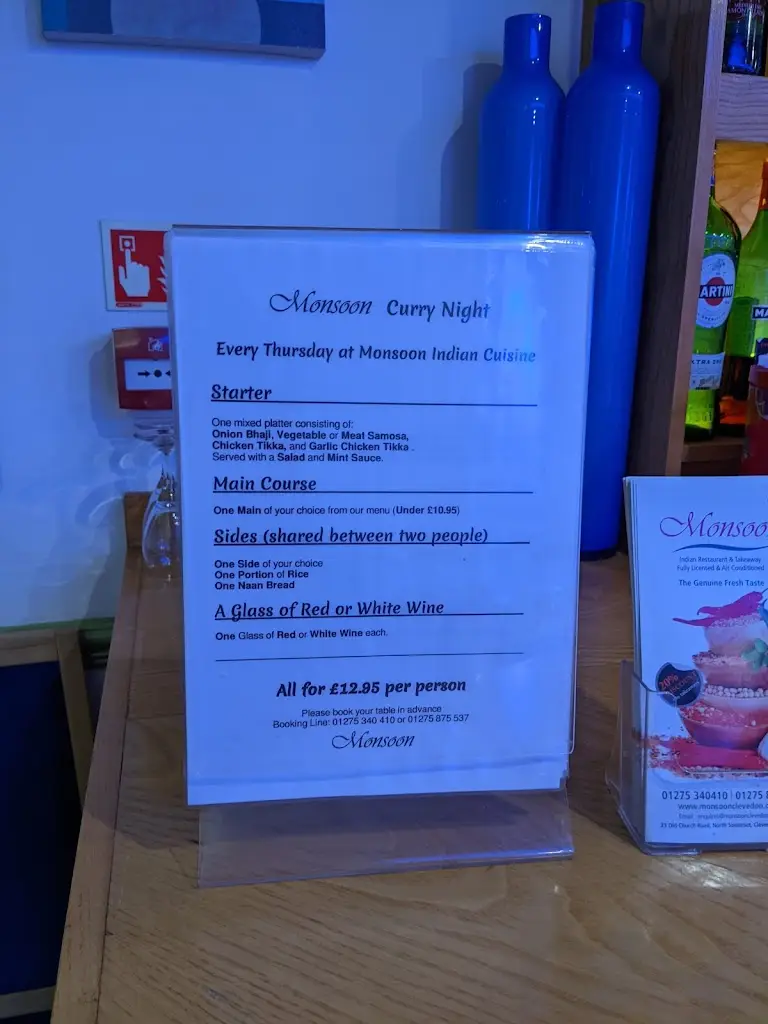 Monsoon Curry Night
Every Thursday at Monsoon Indian Cuisine
Starter
One mixed platter consisting of:
Onion Bhaji, Vegetable or Meat Samosa,
Chicken Tikka, and Garlic Chicken Tikka .
Served with a Salad and Mint Sauce.
Main Course
One Main of your choice from our menu (Under £10.95)
Sides (shared between two people)
One Side of your choice
One Portion of Rice
One Naan Bread
A Glass of Red or White Wine
One Glass of Red or White Wine each.
All for £12.95 per person
Please book your table in advance
Booking Line: 01275 340 410 or 01275 875 537
Monsoon
MARTINI
Monsoo
Indian Restaurant & Takeaway
Fully Licensed & Air Conditioned
The Genuine Fresh Taste
20%
01275 340410 | 01275 8
www.monsoonclevedon.c
23 Old Church Road, North Somerset, Cleve